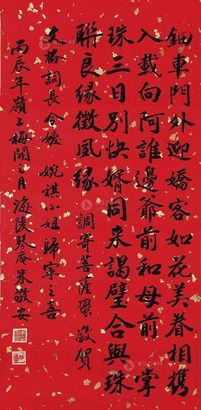 鈿車門外迎嬌客如花美眷相攜
入載向阿誰邊爺前和母前掌
珠三日別快婿同來謁璧合與珠
聯良緣徵鳳緣 調寄菩薩蠻 敬賀
文格詞長令嬡婉褀小姐歸寧之喜
丙辰年嶺上梅開之月海陵琴庵朱敬安